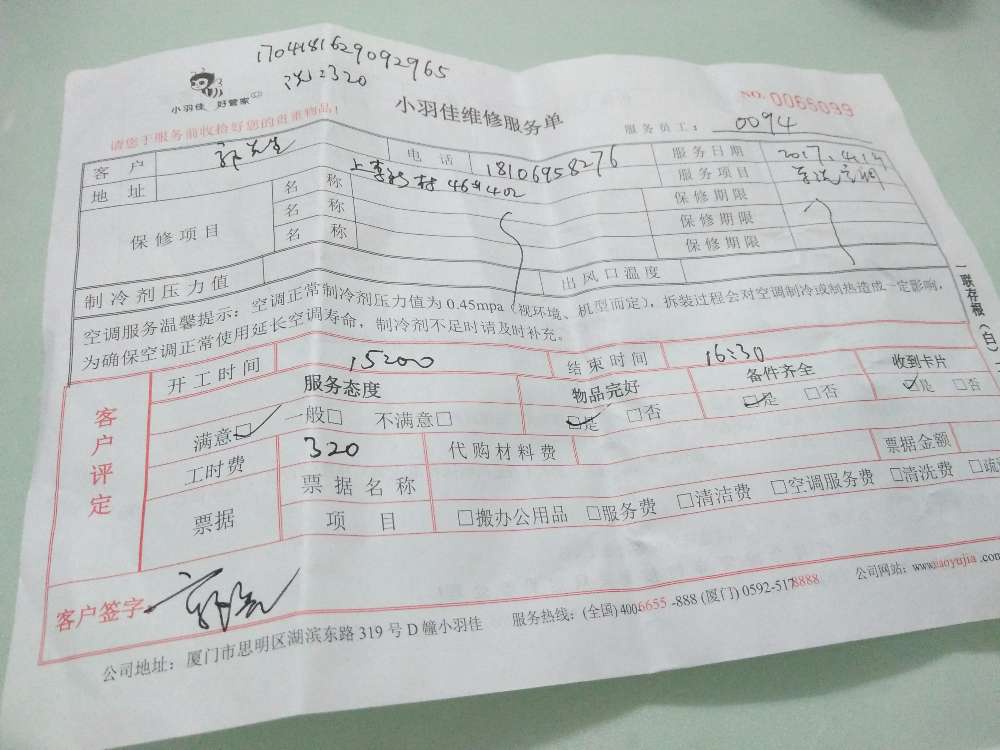 1704181629092965
洗:320
小羽佳 好管家
小羽佳维修服务单
NO. 0065099
请您于服务前收拾好您的贵重物品!
服务员工: 0094
客户 郭先生 电话 18106958276 服务日期 2017.4.19
地址 46# 402 服务项目
保修项目 名称 保修期限
名称 保修期限
名称 保修期限
制冷剂压力值 出风口温度
空调服务温馨提示:空调正常制冷剂压力值为0.45mpa(视环境、机型而定),拆装过程会对空调制冷或制热造成一定影响,
为确保空调正常使用延长空调寿命,制冷剂不足时请及时补充。
一联存根(白)
客户评定
开工时间 15:00 结束时间 16:30
服务态度 物品完好 备件齐全 收到卡片
满意☑ 一般□ 不满意□ ☑是 □否 ☑是 □否 ☑是 □否
工时费 320 代购材料费 票据金额
票据 票据名称
项目 □搬办公用品 □服务费 □清洁费 □空调服务费 □清洗费 □疏
客户签字
公司地址:厦门市思明区湖滨东路319号D幢小羽佳 服务热线:(全国)4006655-888 (厦门)0592-5178888 公司网站:www.xiaoyujia.com